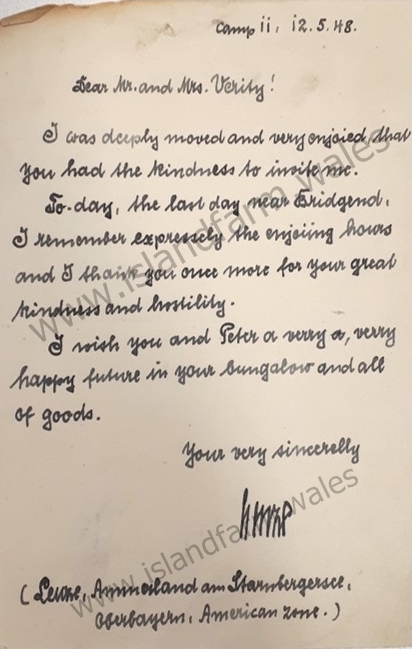 Camp 11, 12.5.48.
Dear Mr. and Mrs. Verity!
I was deeply moved and very enjoied, that
you had the kindness to invite me.
To-day, the last day near Bridgend,
I remember expressely the enjoiing hours
and I thank you once more for your great
kindness and hostility.
I wish you and Peter a verry a, verry
happy future in your bungalow and all
of goods.
Your very sincerelly
(Leuze, Ammerland am Starnbergersee,
Oberbayern, American zone.)
www.islandfarm.wales
www.islandfarm.wales